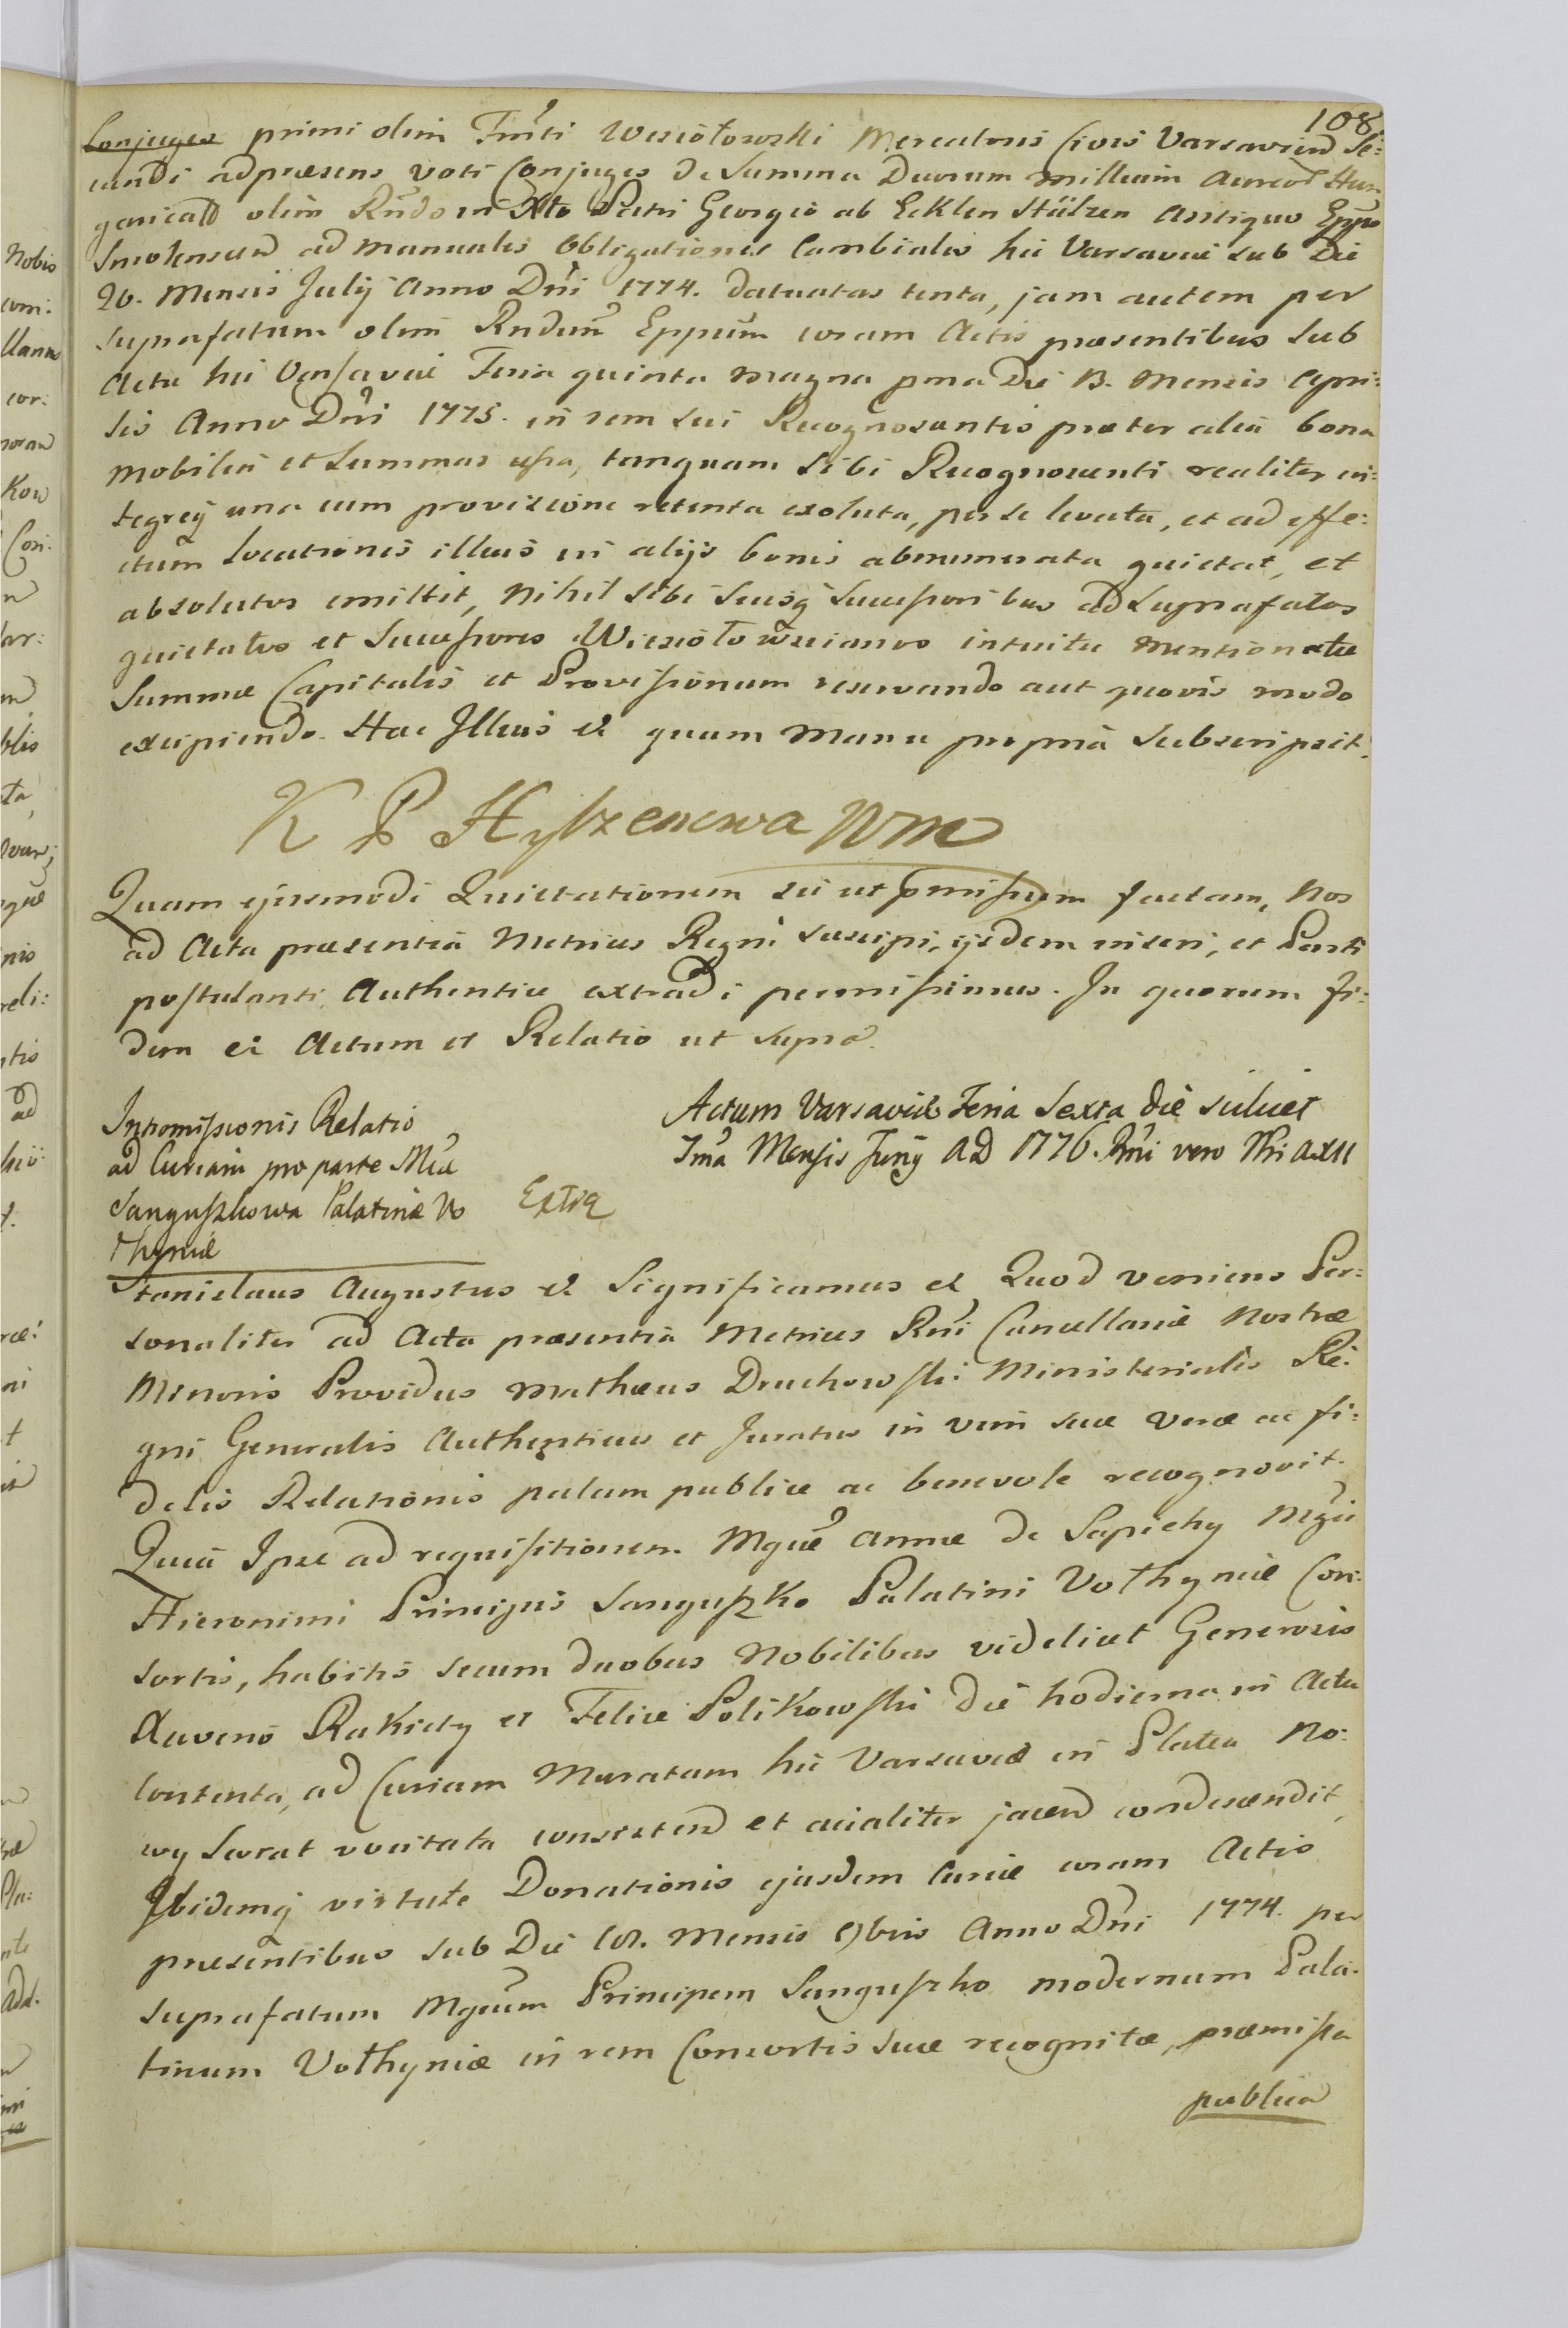 108
Conjuges primi olim Fmti Wesiołowski Mercatoris Civis Varsavien Se:
cundi adpræsens voti Conjuges de Summa Duorum millium Aureor Hun
garicall olim Rndo in Xto Patri Georgio ab Ecklen Hülzen Antiquo Eppo
Smolenscen ad manuales Obligationes Cambiales hic Varsaviæ sub Die
26. Mensis Julij Anno Dni 1774. datuatas tenta, jam autem per
suprafatum olim Rndum Eppum coram Actis præsentibus sub
Actu hic Varsaviæ Feria quinta magna pma Die 13. Mensis Apri:
lis Anno Dni 1775. in rem sui Recognoscentis præter alia bona
mobilia et Summas cessa, tanquam sibi Recognoscenti realiter in:
tegrè una cum provisione retenta exoluta, per se levata, et ad effe:
ctum locationis illius in alijs bonis abnumerata quietat, et
absolutos emittit, nihil sibi suisq Successoribus ad suprafatos
quietatos et Successores Wiesiołowscianos intuitu mentionatæ
Summæ Capitalis et Provisionum reservando aut quovis modo
excipiendo. Hac Illius et quam Manu propriâ Subscripsit.
K P Hylzenowa Wm
Quam ejusmodi Quietationem sic ut pmissum factam, Nos
ad Acta præsentia Metrices Regni suscipi, ijsdem inseri, et Parti
postulanti Authentice extradi permisimus. In quorum fi:
dem et Actum et Relatio ut supra.
Intromissionis Relatio
ad Curiam pro parte Mcæ
Sanguszkowa Palatinæ Vo
lhyniæ
Extra
Actum Varsaviæ Feria Sexta die scilicet
7ma Mensis Junij AD 1776. Rni vero Nri AXII
Stanislaus Augustus et Significamus et Quod veniens Per:
sonaliter ad Acta præsentia Metrices Rni Cancellariæ Nostræ
Minoris Providus Mathæus Druchowski Ministerialis Re:
gni Generalis Authenticus et Juratus in vim suæ veræ ac fi:
delis Relationis palam publice ac benevole recognovit.
Quia Ipse ad requisitionem Mgcæ Annæ de Sapiehy Mgci
Hieronimi Principis Sanguszko Palatini Volhyniæ Con:
sortis, habitis secum duobus Nobilibus videlicet Generosis
Xavero Rakiety et Felice Polikowski die hodierna in Actu
contenta, ad Curiam Muratam hic Varsaviæ in Platea No:
wy Swiat vocitata consisten et acialiter jacen condescendit,
Ibidemq virtute Donationis ejusdem Curiæ coram Actis
præsentibus sub Die Mensis 9bris Anno Dni 1774. per
suprafatum Mgcum Principem Sanguszko modernum Pala:
tinum Volhyniæ in rem Consortis suæ recognitæ, præmissa
publica